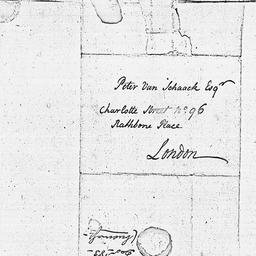 Peter Van Schaack Esqr
Charlotte Street No 96
Rathbone Place
London